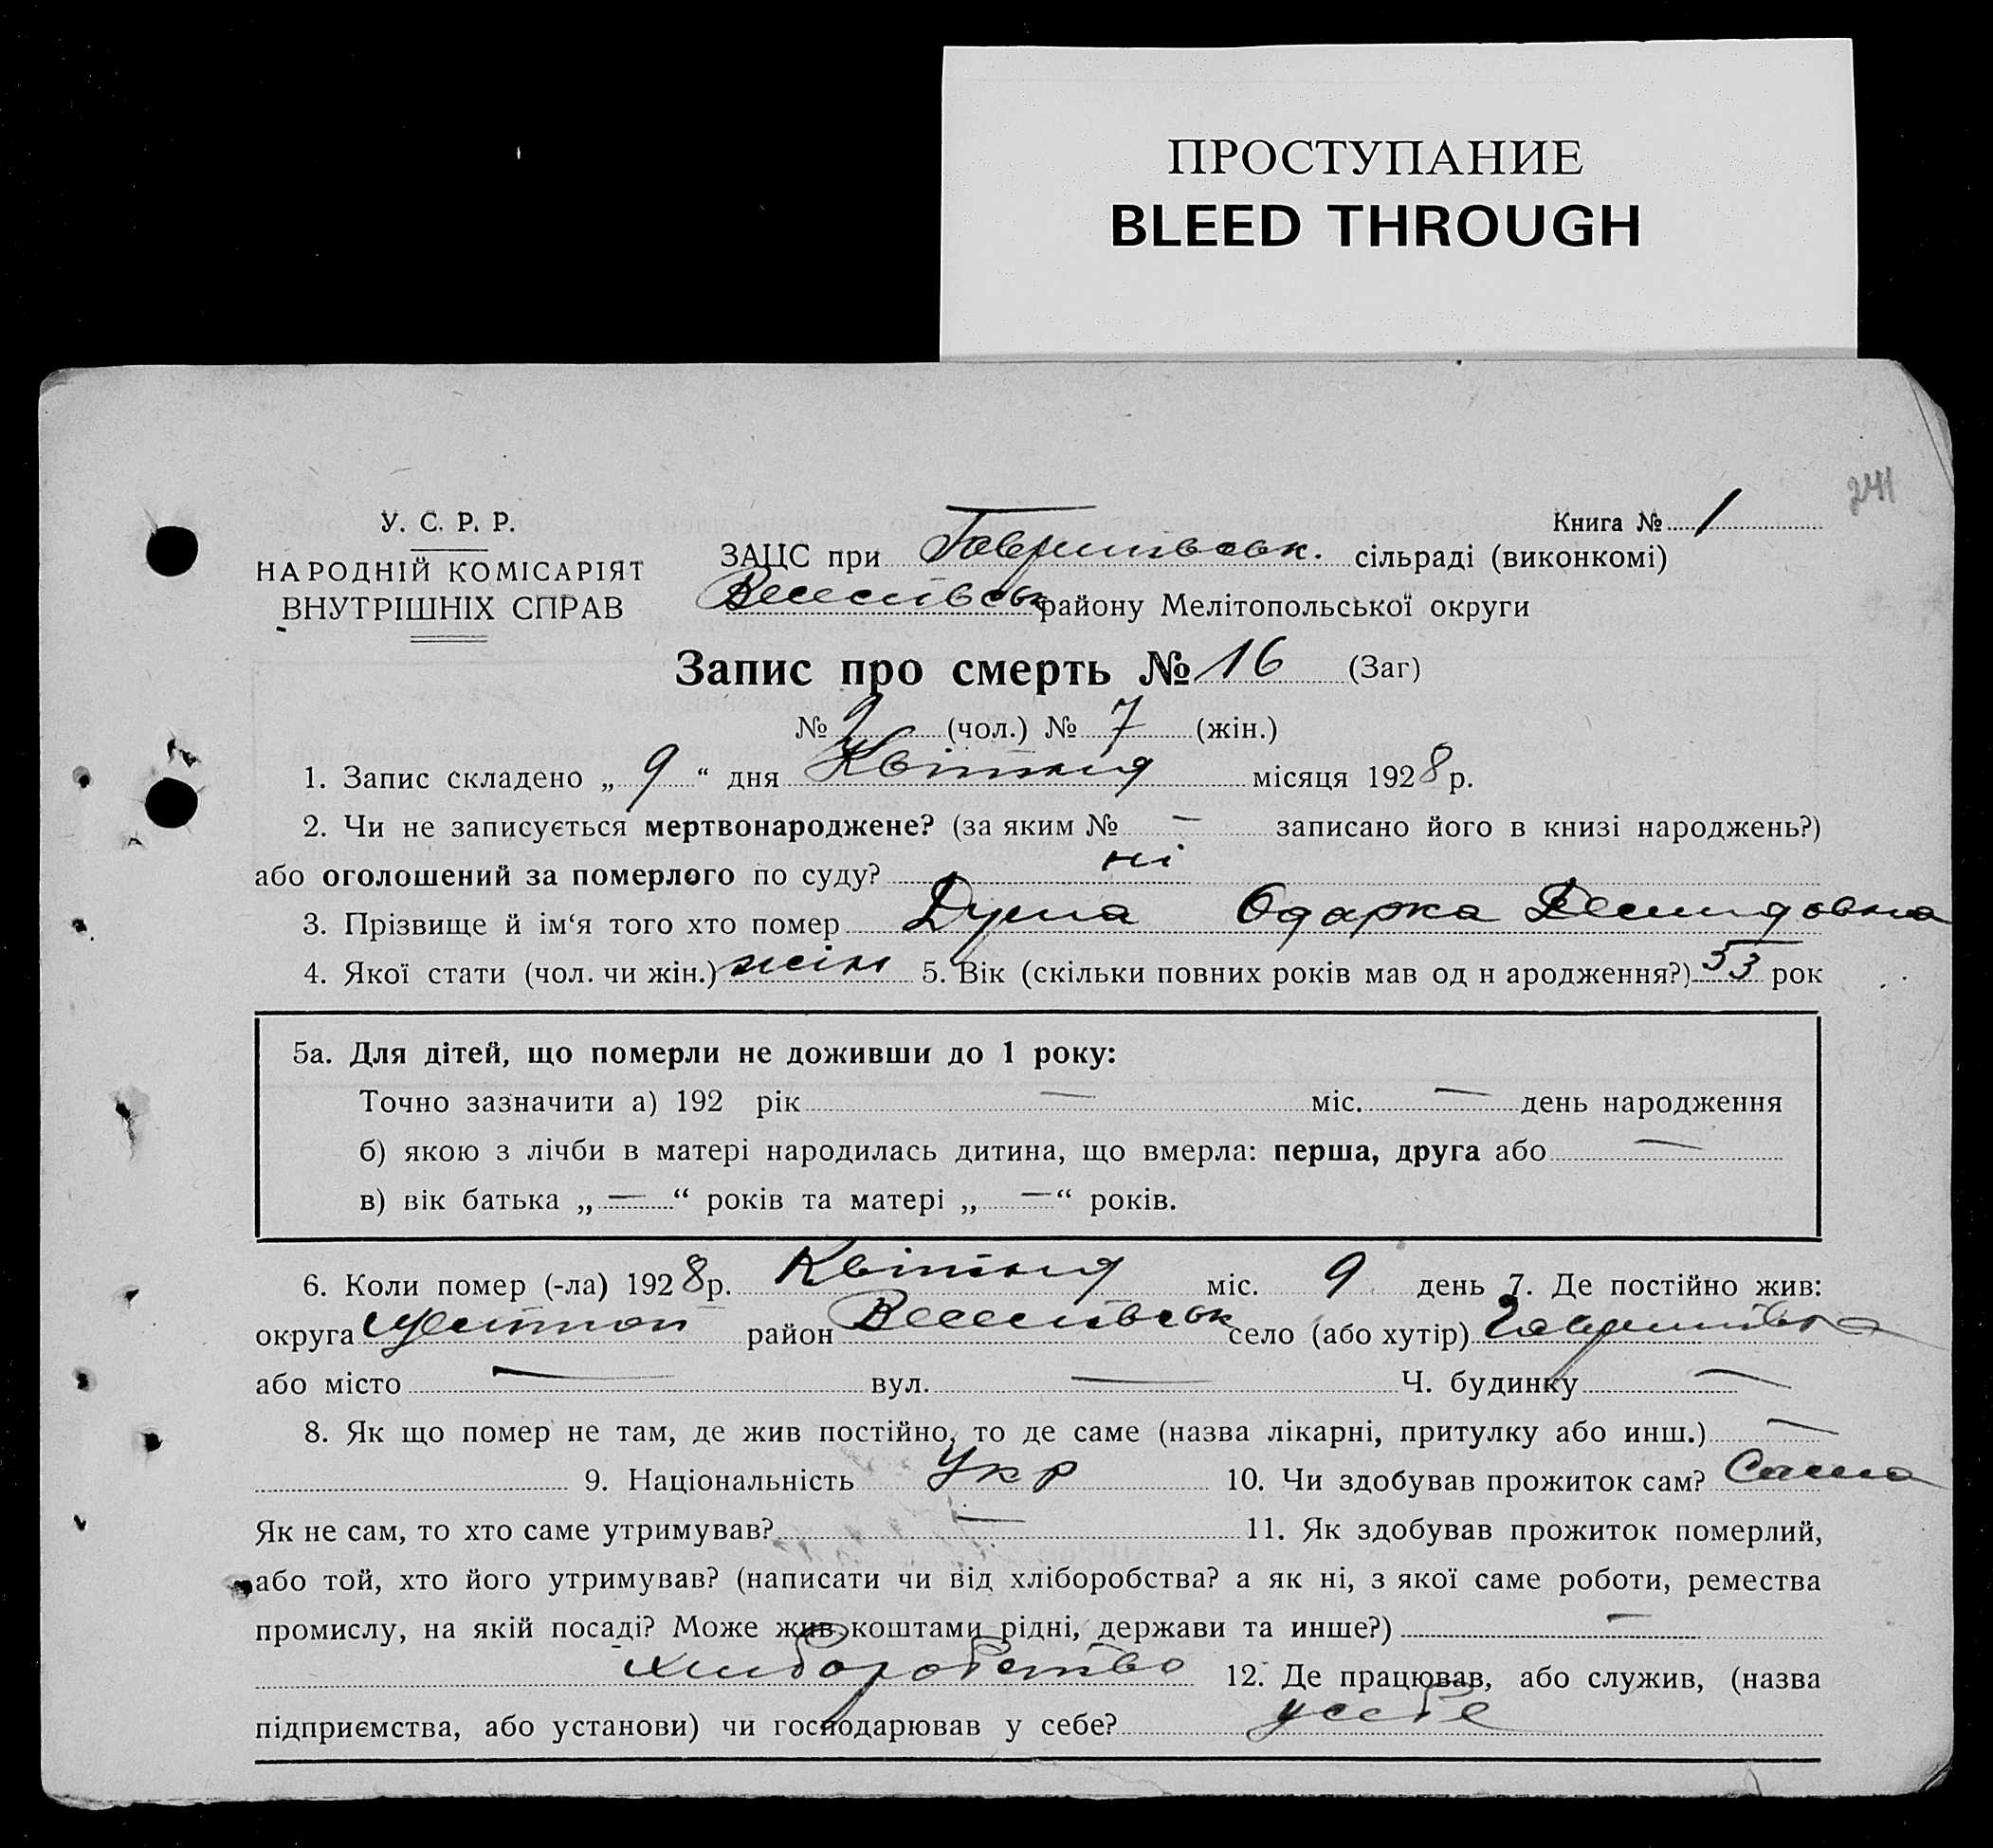 ПРОСТУПАНИЕ
BLEED THROUGH
241
У. С. Р. Р.
НАРОДНІЙ КОМІСАРІЯТ
ВНУТРІШНІХ СПРАВ
Книга № 1
ЗАЦС при Гаврилівськ. сільраді (виконкомі)
Веселівськ району Мелітопольської округи
Запис про смерть № 16 (Заг)
№ 9 (чол.) № 7 (жін.)
1. Запис складено „ 9 “ дня Квітня місяця 1928 р.
2. Чи не записується мертвонароджене? (за яким № — записано його в книзі народжень?)
або оголошений за померлого по суду? ні
3. Прізвище й ім‘я того хто помер Одарка Демидовна
4. Якої стати (чол. чи жін.) жін 5. Вік (скільки повних років мав од н ародження?) 53 рок
5а. Для дітей, що померли не доживши до 1 року:
Точно зазначити а) 192 рік — міс. — день народження
б) якою з лічби в матері народилась дитина, що вмерла: перша, друга або —
в) вік батька „ — “ років та матері „ — “ років.
6. Коли помер (-ла) 1928 р. Квітня міс. 9 день 7. Де постійно жив:
округа Мелітоп район Веселівськ село (або хутір) Гаврилівка
або місто — вул. — Ч. будинку —
8. Як що помер не там, де жив постійно, то де саме (назва лікарні, притулку або инш.) —
9. Національність Укр 10. Чи здобував прожиток сам? Сама
Як не сам, то хто саме утримував? — 11. Як здобував прожиток померлий,
або той, хто його утримував? (написати чи від хліборобства? а як ні, з якої саме роботи, ремества
промислу, на якій посаді? Може жив коштами рідні, держави та инше?) —
хліборобство 12. Де працював, або служив, (назва
підприємства, або установи) чи господарював у себе? у себе